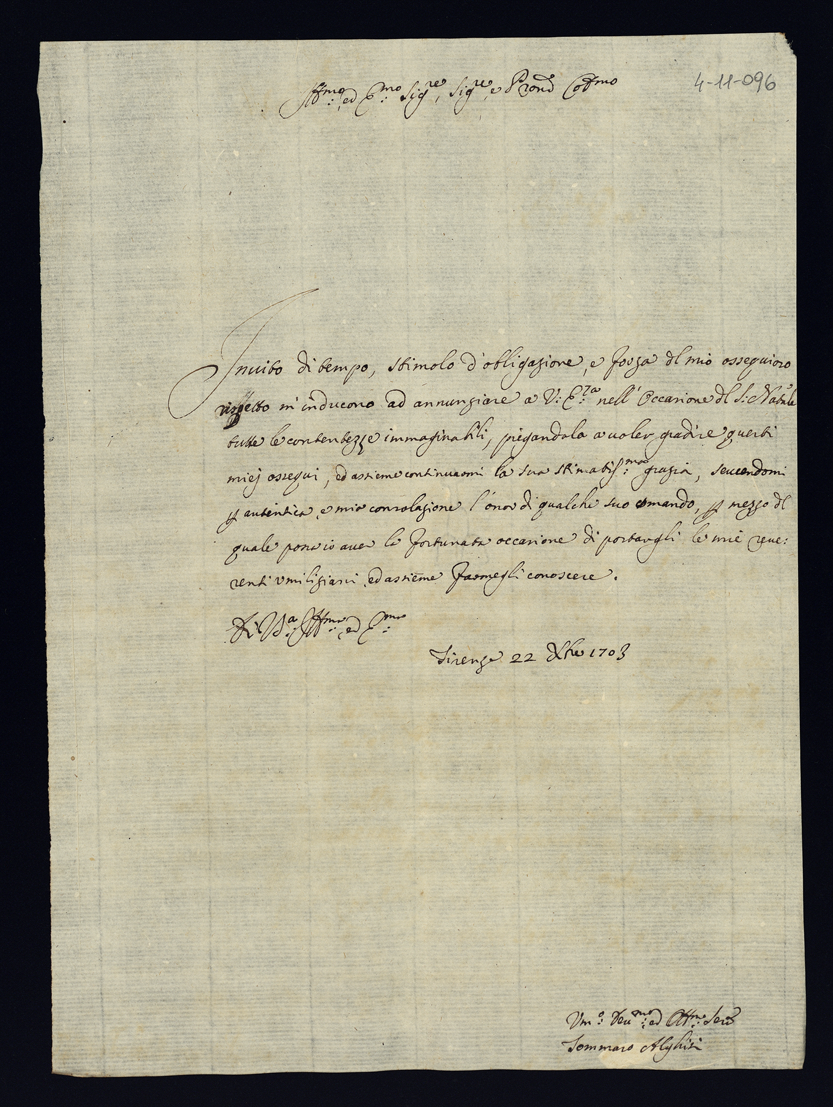 Ill.mo, ed Ecc.mo Sig.re, Sig.re, e Pron.e Col.mo
4-11-096
Invito di tempo, stimolo d'obligazione, e forza del mio ossequioso
rispetto m'inducono ad annunziare a V: E.za nell'Occasione del S: Natale
tutte le contentezze immaginabili, piegandola a voler gradire questi
miei ossequi, ed assieme continuarmi la sua stimatiss.ma grazia,
p autentica, e mia consolazione l'onor di qualche suo comando, p mezzo del
quale possi io aver la fortunata occasione di portargli le mie reve:
renti umiliazioni, ed assieme farmegli conoscere.
Di V.S.a Ill.ma, ed Ecc.ma
Firenze 22 Xbre 1703
Um.o Dev.mo ed Obl.mo Ser.e
Tommaso Alghisi